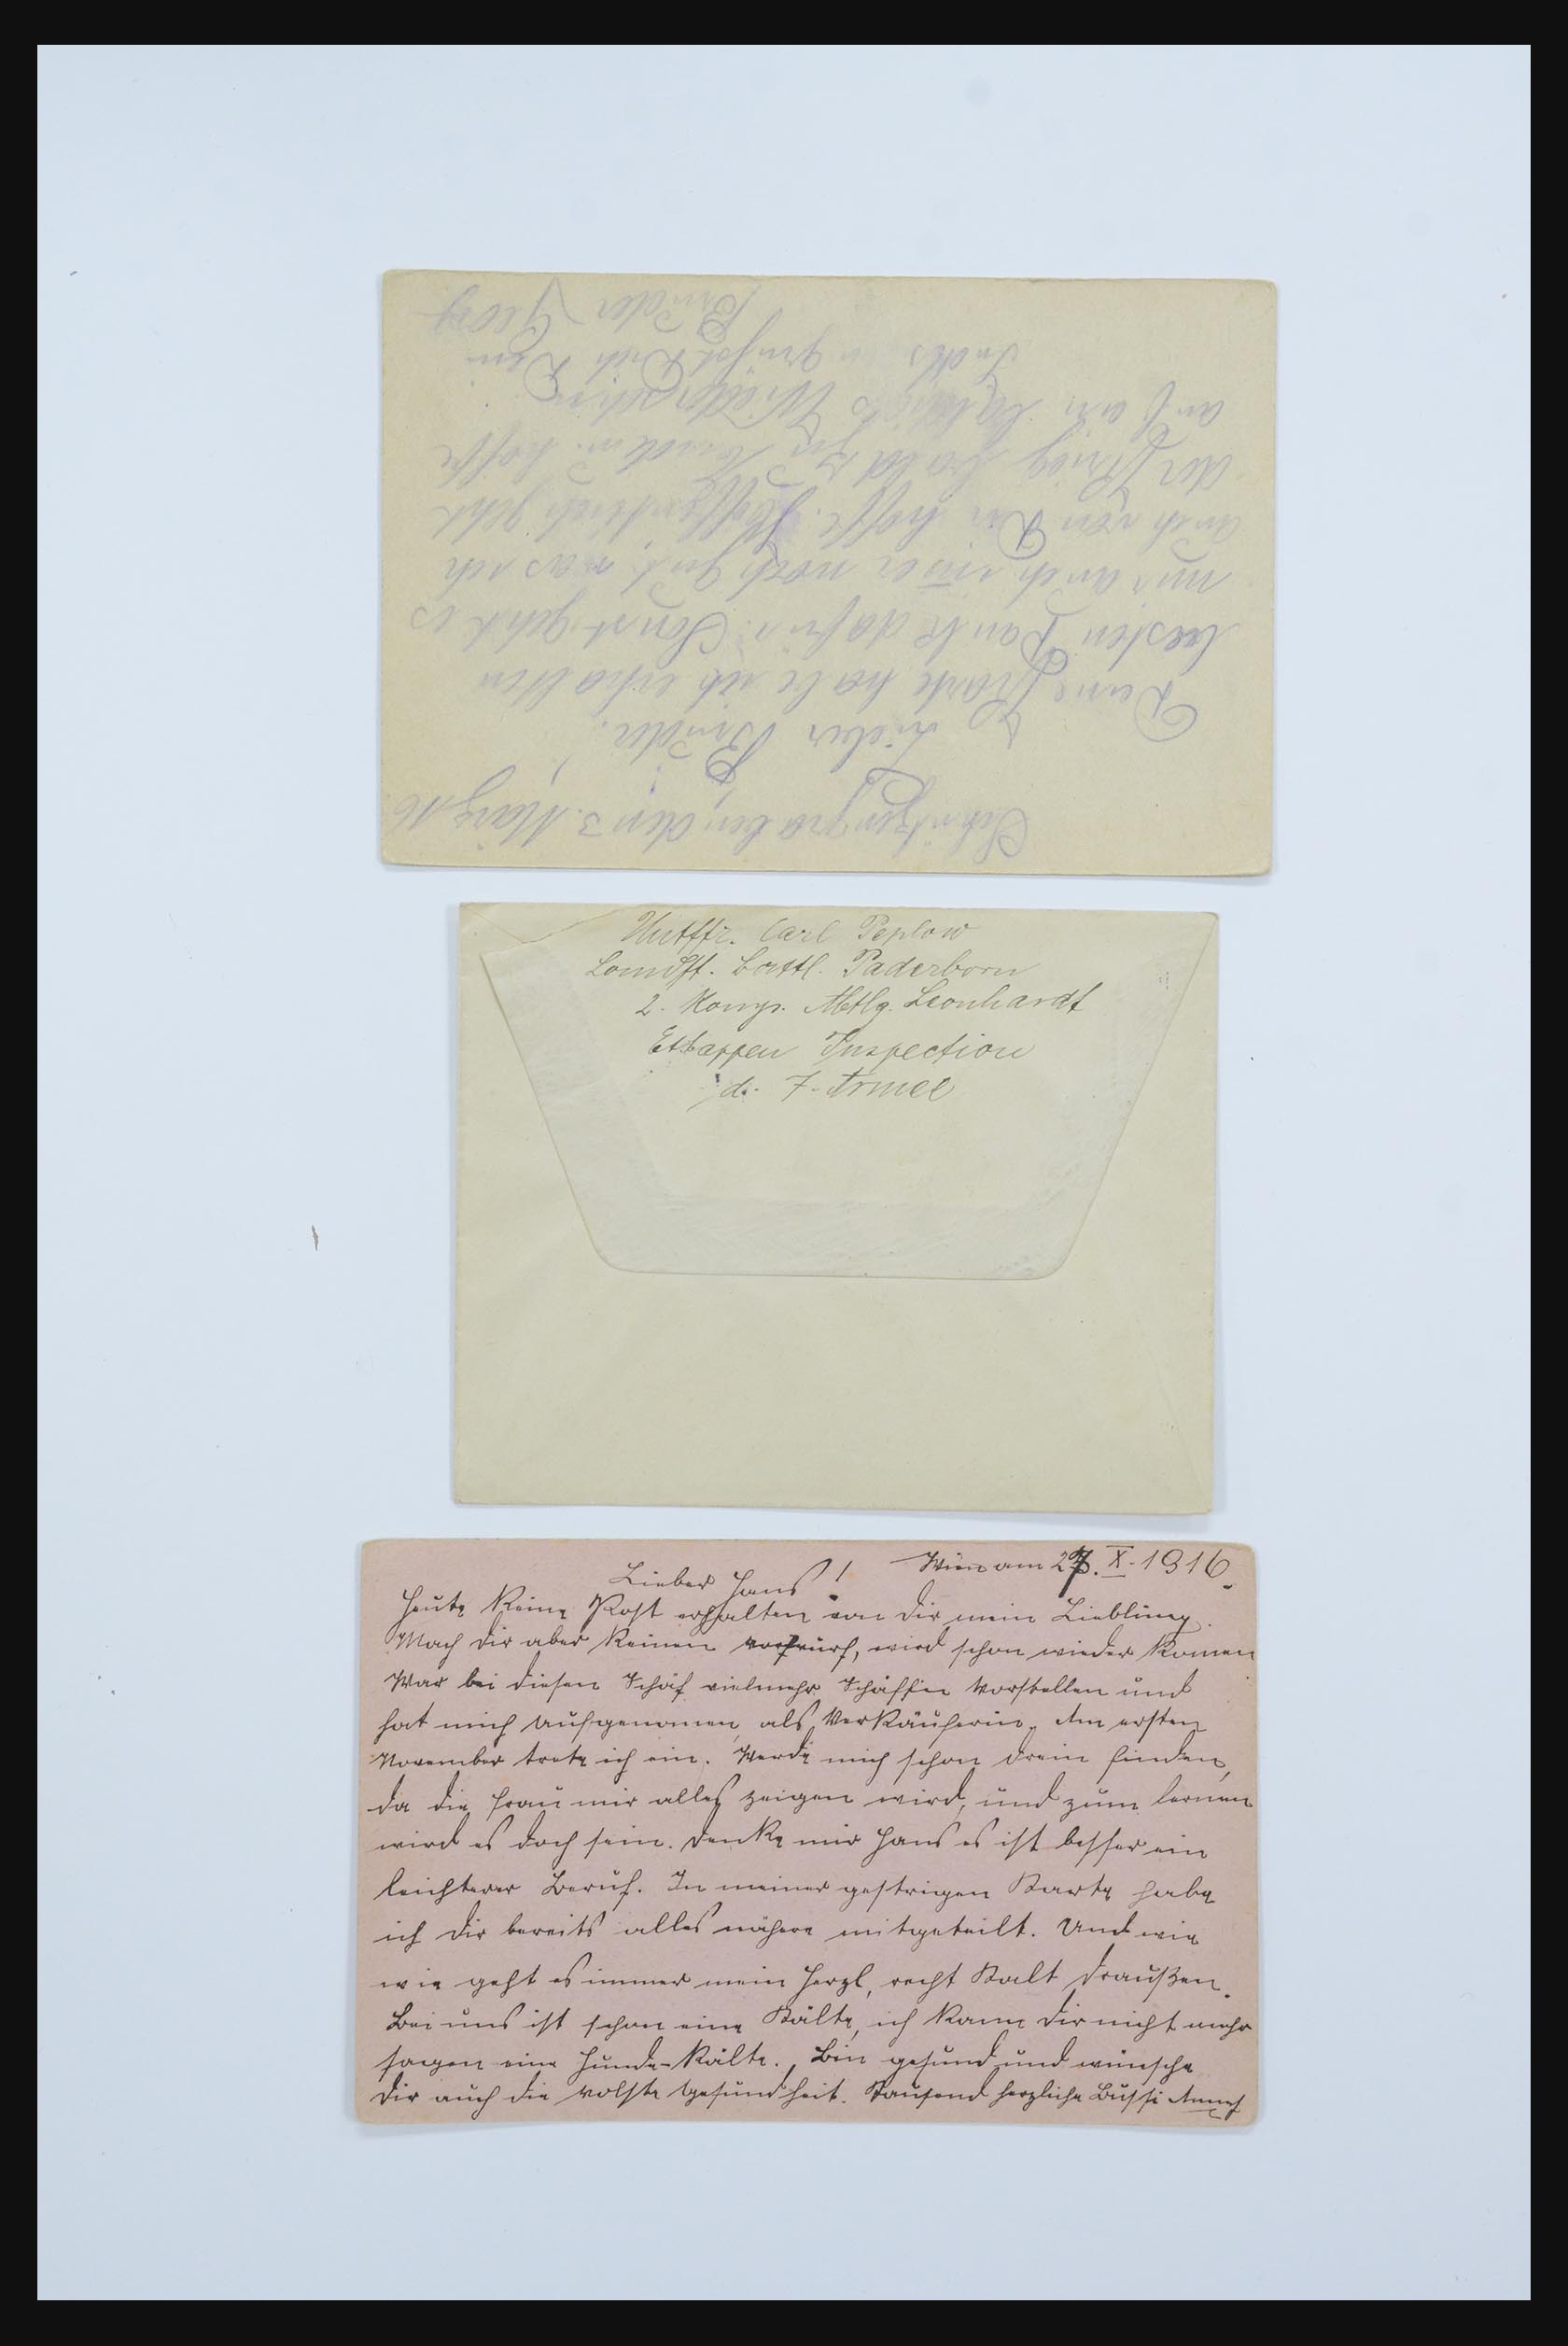 Schützengraben, den 3. März 16.
Lieber Bruder!
Deine Karte habe ich erhalten
besten Dank dafür. Sonst geht es
mir auch im̄er noch gut, was ich
auch von Dir hoffe. Hoffentlich geht
der Krieg bald zu Ende u. hoffe
auf ein Wiedersehn
grüßt Dich Dein
Bruder Georg
Untffz. Carl Peplow
Landst. Battl. Paderborn
2. Komp. Abtlg. Leonhardt
Ettappen Inspection
d. 7. Armee
Wien am 27. X. 1916.
Lieber Hans!
Heute keine Post erhalten von dir mein Liebling.
Mach dir aber keinen vorfwurf, wird schon wieder komen
War bei diesen Schäf vielmehr Schäffin Vorstellen und
hat mich aufgenomen, als Verkäuferin. Am ersten
November trete ich ein. Werde mich schon drein finden,
da die Frau mir alles zeigen wird, und zum lernen
wird es doch sein. Denke mir Hans es ist besser ein
leichterer Beruf. In meiner gestrigen Karte habe
ich dir bereits alles nähere mitgeteilt. Und wie
wie geht es immer mein Herzl, recht Kalt draußen.
Bei uns ist schon eine Kälte, ich kann dir nicht mehr
sagen eine Hunde-Kälte. Bin gesund und wünsche
dir auch die volste Gesundheit. Tausend herzliche Bussi